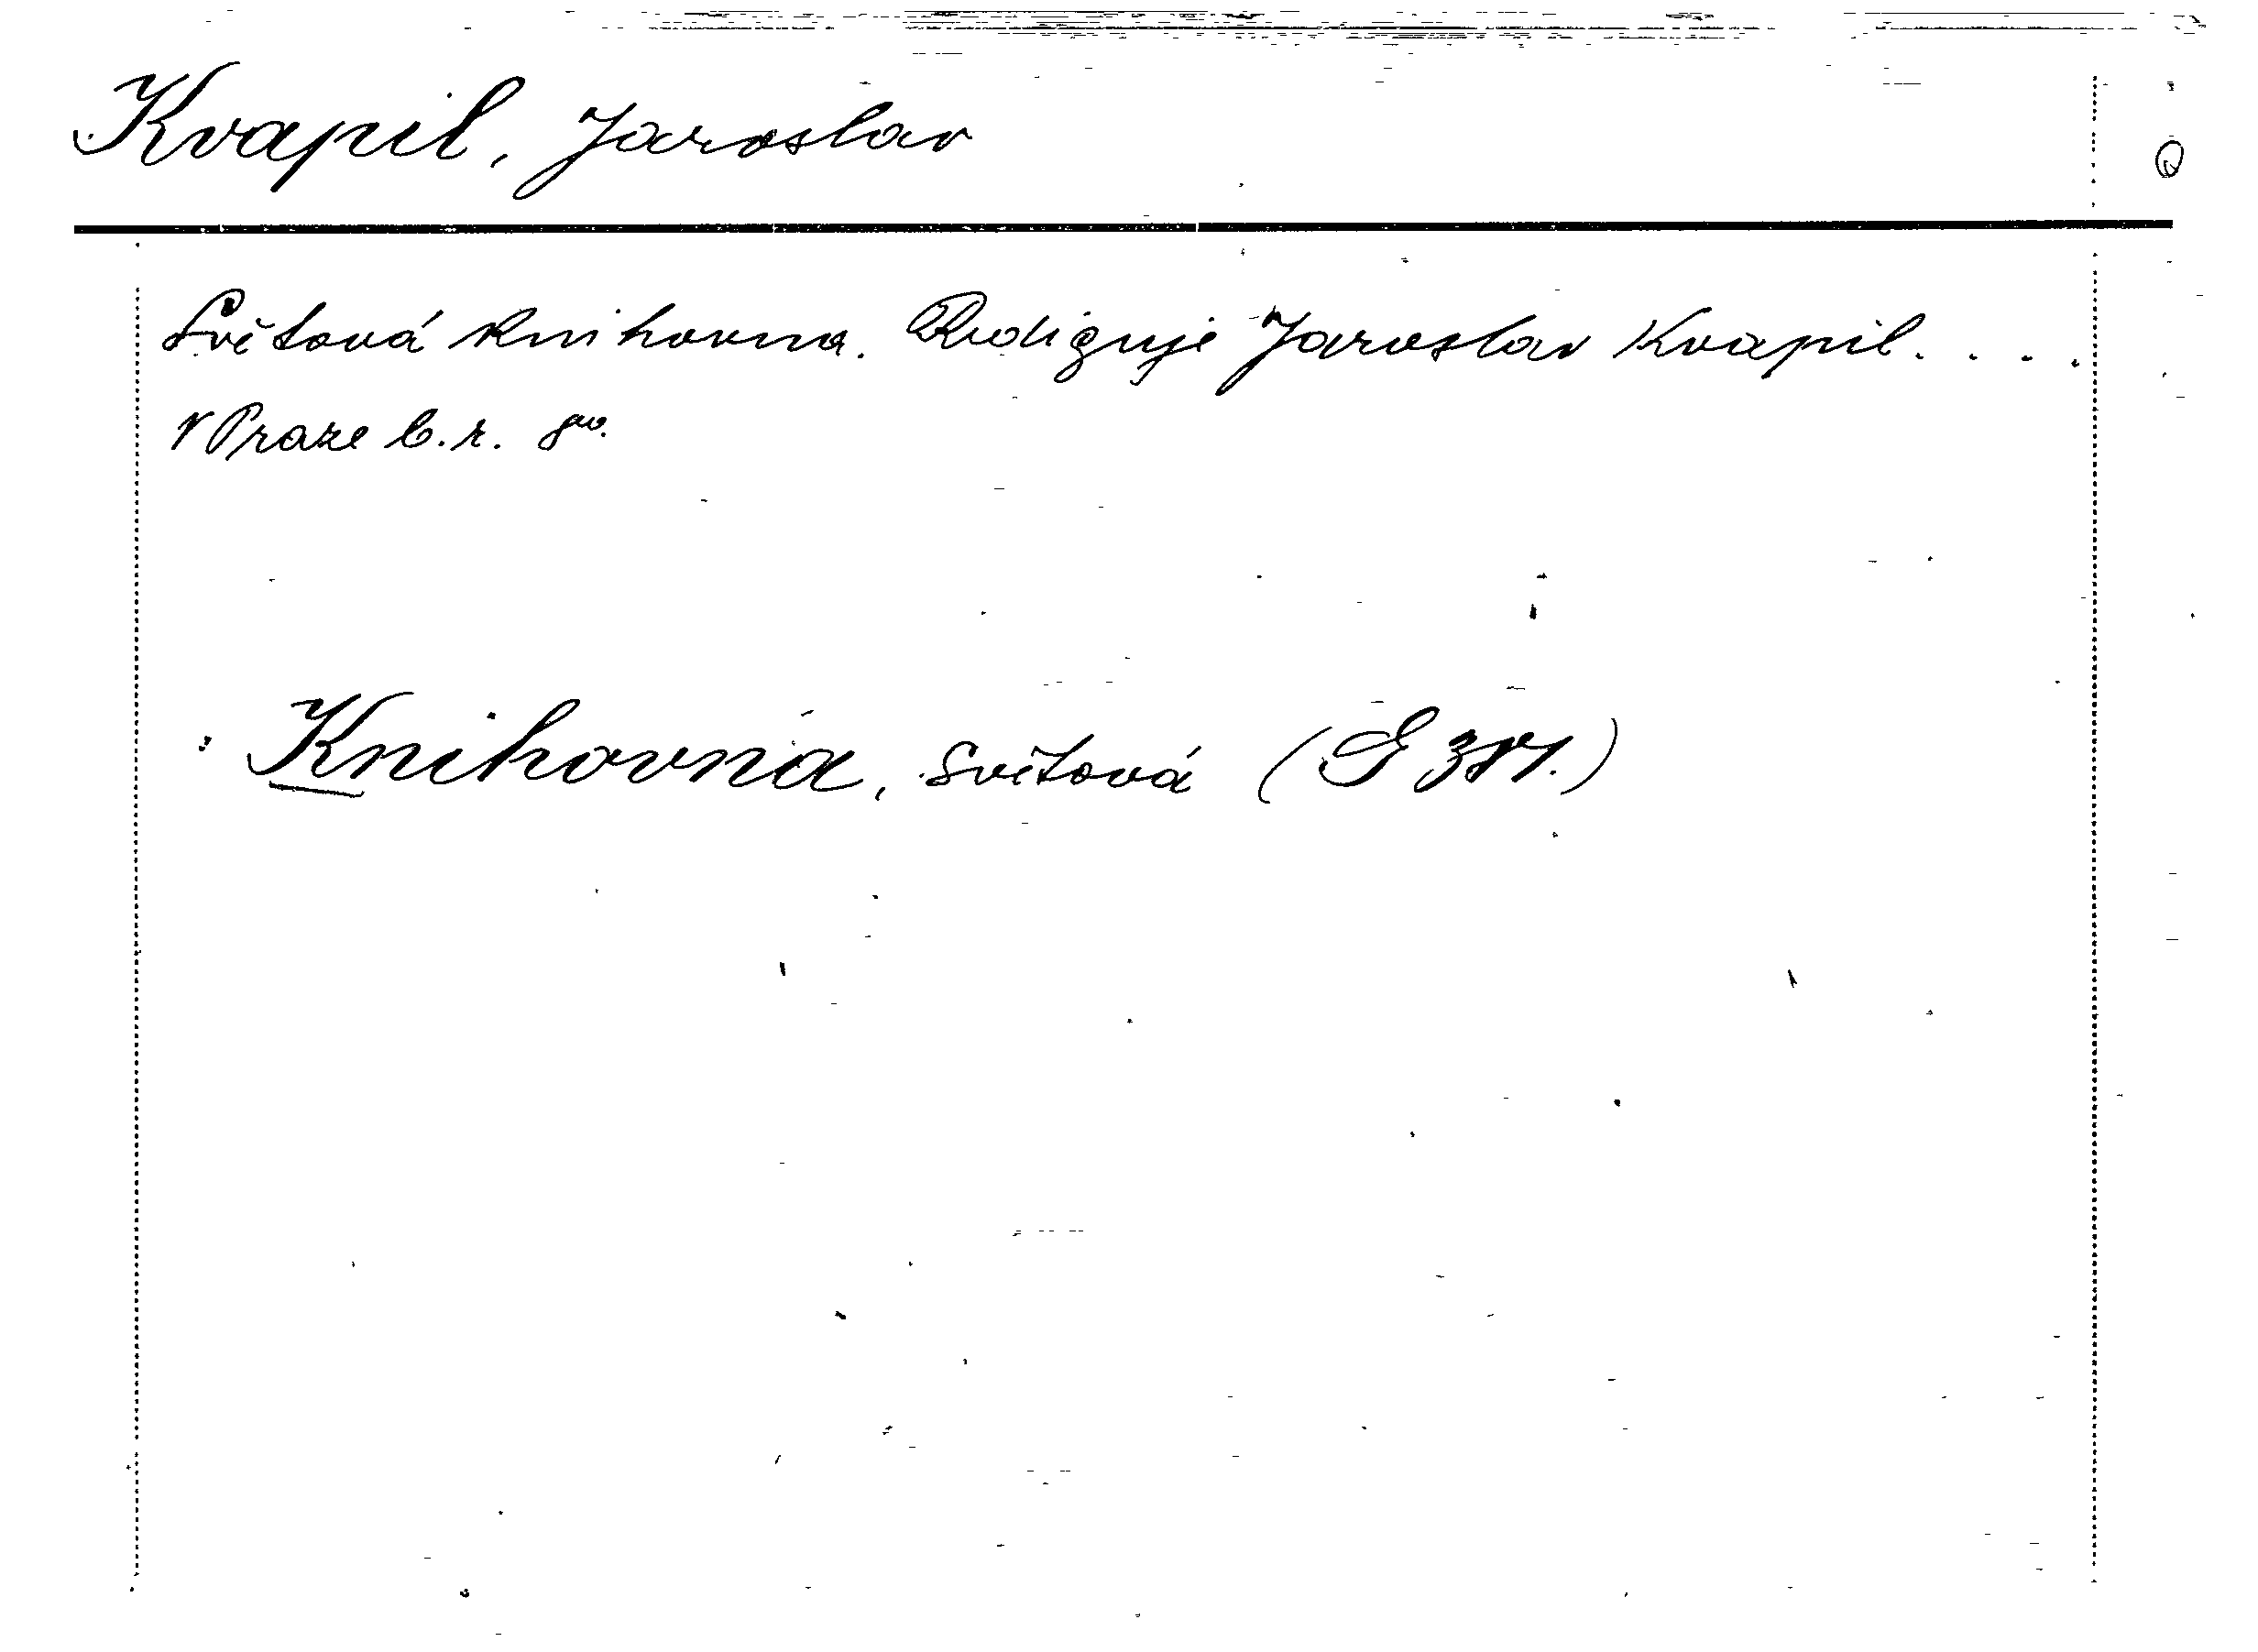 Kvapil, Jaroslav
Světová knihovna. Rediguje Jaroslav Kvapil. . . .
V Praze b.r. 8vo.
Knihovna, Světová